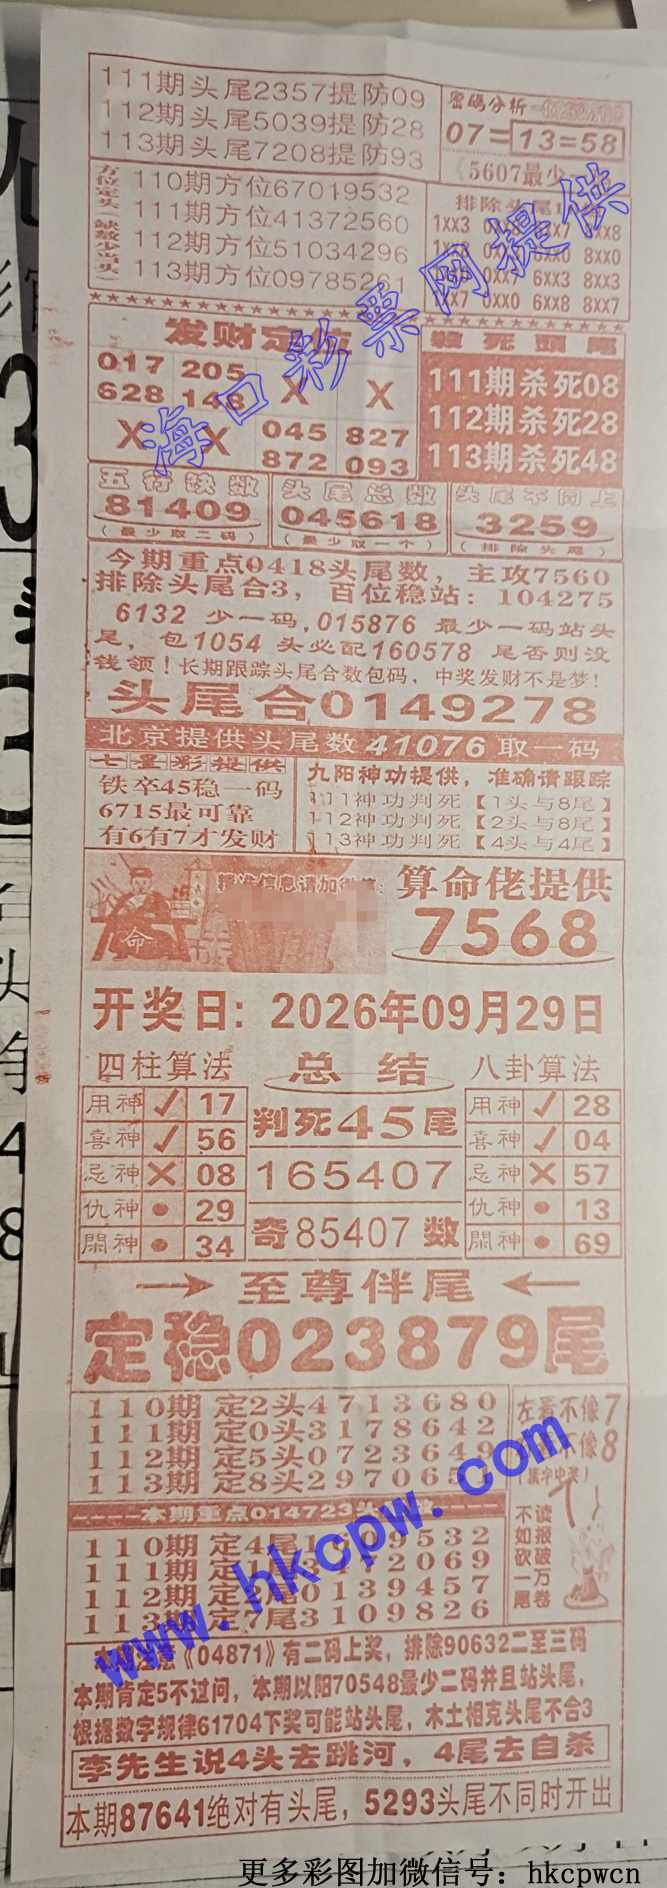 111期头尾2357提防09
112期头尾5039提防28
113期头尾7208提防93
密码分析
07=13=58
5607最少
方位定头(缺数少当头)
110期方位67019532
111期方位41372560
112期方位51034296
113期方位09785261
排除头尾
1XX3 XX7 8XX8
8XX0
0XX7 6XX3 8XX3
XX7 0XX0 6XX8 8XX7
发财定位
017 205 X X
628 148
X X 045 827
872 093
杀死头尾
111期杀死08
112期杀死28
113期杀死48
五行缺数
81409
(最少取二码)
头尾总数
045618
(最少取一个)
头尾不同上
3259
(排除头尾)
今期重点0418头尾数，主攻7560
排除头尾合3，百位稳站：104275
6132 少一码,015876 最少一码站头
尾，包1054 头必配160578 尾否则没
钱领！长期跟踪头尾合数包码，中奖发财不是梦！
头尾合0149278
北京提供头尾数41076取一码
七星彩提供
铁卒45稳一码
6715最可靠
有6有7才发财
九阳神功提供，准确请跟踪
111神功判死【1头与8尾】
112神功判死【2头与8尾】
113神功判死【4头与4尾】
精准信息请加微信：
命
算命佬提供
7568
开奖日：2026年09月29日
四柱算法
用神 ✓ 17
喜神 ✓ 56
忌神 ✕ 08
仇神 ● 29
閑神 ● 34
总结
判死45尾
165407
奇85407数
八卦算法
用神 ✓ 28
喜神 ✓ 04
忌神 ✕ 57
仇神 ● 13
閑神 ● 69
→ 至尊伴尾 ←
定稳023879尾
110期 定2头4713680
111期 定0头3178642
112期 定5头0723649
113期 定8头297065
左看不像7
不像8
(猜字中奖)
本期重点014723头
110期 定4尾1 09532
111期 定 2069
112期 定 尾0139457
113期 定7尾3109826
读报破万卷
不如砍一尾
《04871》有二码上奖，排除90632二至三码
本期肯定5不过问，本期以阳70548最少二码并且站头尾，
根据数字规律61704下奖可能站头尾，木土相克头尾不合3
李先生说4头去跳河，4尾去自杀
本期87641绝对有头尾，5293头尾不同时开出
海口彩票网提供
www.hkcpw.com
更多彩图加微信号：hkcpwcn